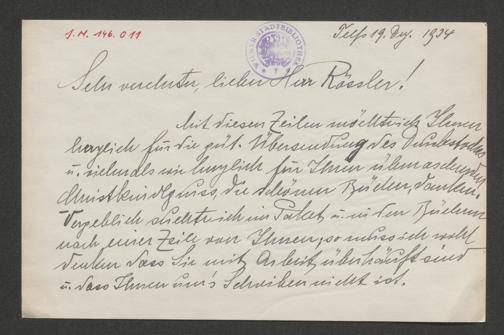 I.N. 146.011
WIENER STADTBIBLIOTHEK
Telfs 19. Dez. 1934
Sehr verehrter, lieber Herr Rössler!
Mit diesen Zeilen möchte ich Ihnen
herzlich für die güt. Übersendung des
u. vielmals herzlich für Ihren überraschenden
Christkindlgruss, die schönen Bücher, danken.
Vergeblich suchte ich im Paket u. in den Büchern
nach einer Zeile von Ihnen, so muss ich wohl
denken dass Sie mit Arbeit überhäuft sind
u. dass Ihnen um's Schreiben nicht ist.